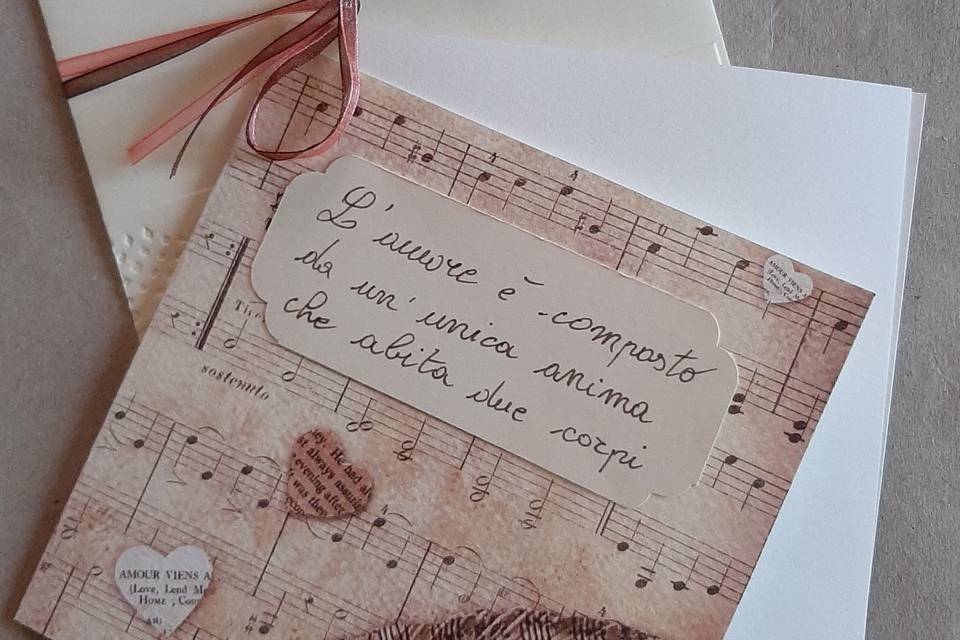 L'amore è composto
da un'unica anima
che abita due corpi
AMOUR VIENS A
(Love, Lend
sostenuto
ey. He had
always assu
evening after
was the
AMOUR VIENS A
(Love, Lend M
HOME , Con